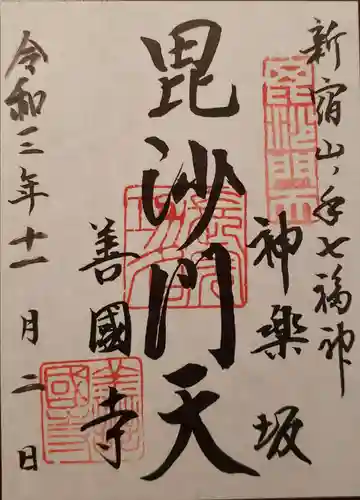 新宿山ノ手七福神
神樂坂
毘沙門天
善國寺
令和三年十一月二日
毘沙門天